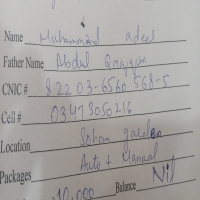 Name Muhammad adeel
Father Name Abdul Qayyum
CNIC# 82203-6560568-5
Cell # 03473050216
Location Soham garden
Packages Auto + Manual
10,000 Balance Nil